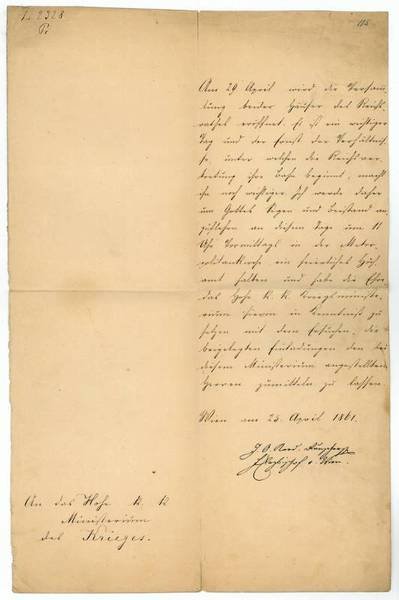 Z. 2328
Pr
115
Am 29 April wird die Versam-
lung beider Häuser des Reichs-
rathes eröffnet. Es ist ein wichtiger
Tag und der Ernst der Verhältnis-
se, unter welchen die Reichsver-
tretung ihre Bahn beginnt, macht
ihn noch wichtiger. Ich werde daher
um Gottes Segen und Beistand an-
zuflehen an diesem Tage um 11
Uhr Vormittags in der Metro-
politankirche ein feierliches Hoch-
amt halten und habe die Ehre
das Hohe K. K. Kriegsministe-
rium hievon in Kenntniß zu
setzen mit dem Ersuchen, die
beigelegten Einladungen den bei
diesem Ministerium angestellten
Herren zumitteln zu lassen.
Wien am 25. April 1861.
J. O. Card. Rauscher
Erzbischof v. Wien.
An das Hohe K. K.
Ministerium
des Krieges.